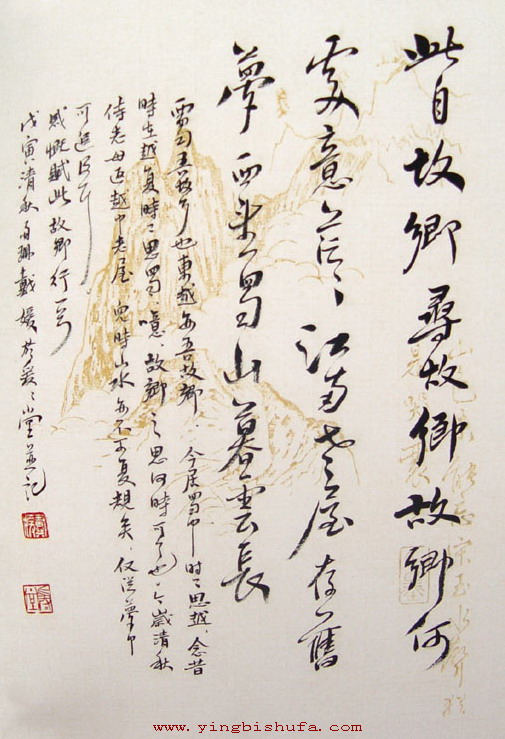 此日故鄉尋故鄉故鄉何
處意茫々江南老屋存舊
夢西來蜀山暮雲長
西蜀吾故鄉也東越亦吾故鄉今居蜀中時々思越念昔
時在越复時々思蜀噫故鄉之思何時可了也今歲清秋
侍老母返越中老屋兒時山水亦不可复矣仅從夢中
可追
感慨賦此故鄉行一首
戊寅清秋戴媛於爰々堂並記
www.yingbishufa.com